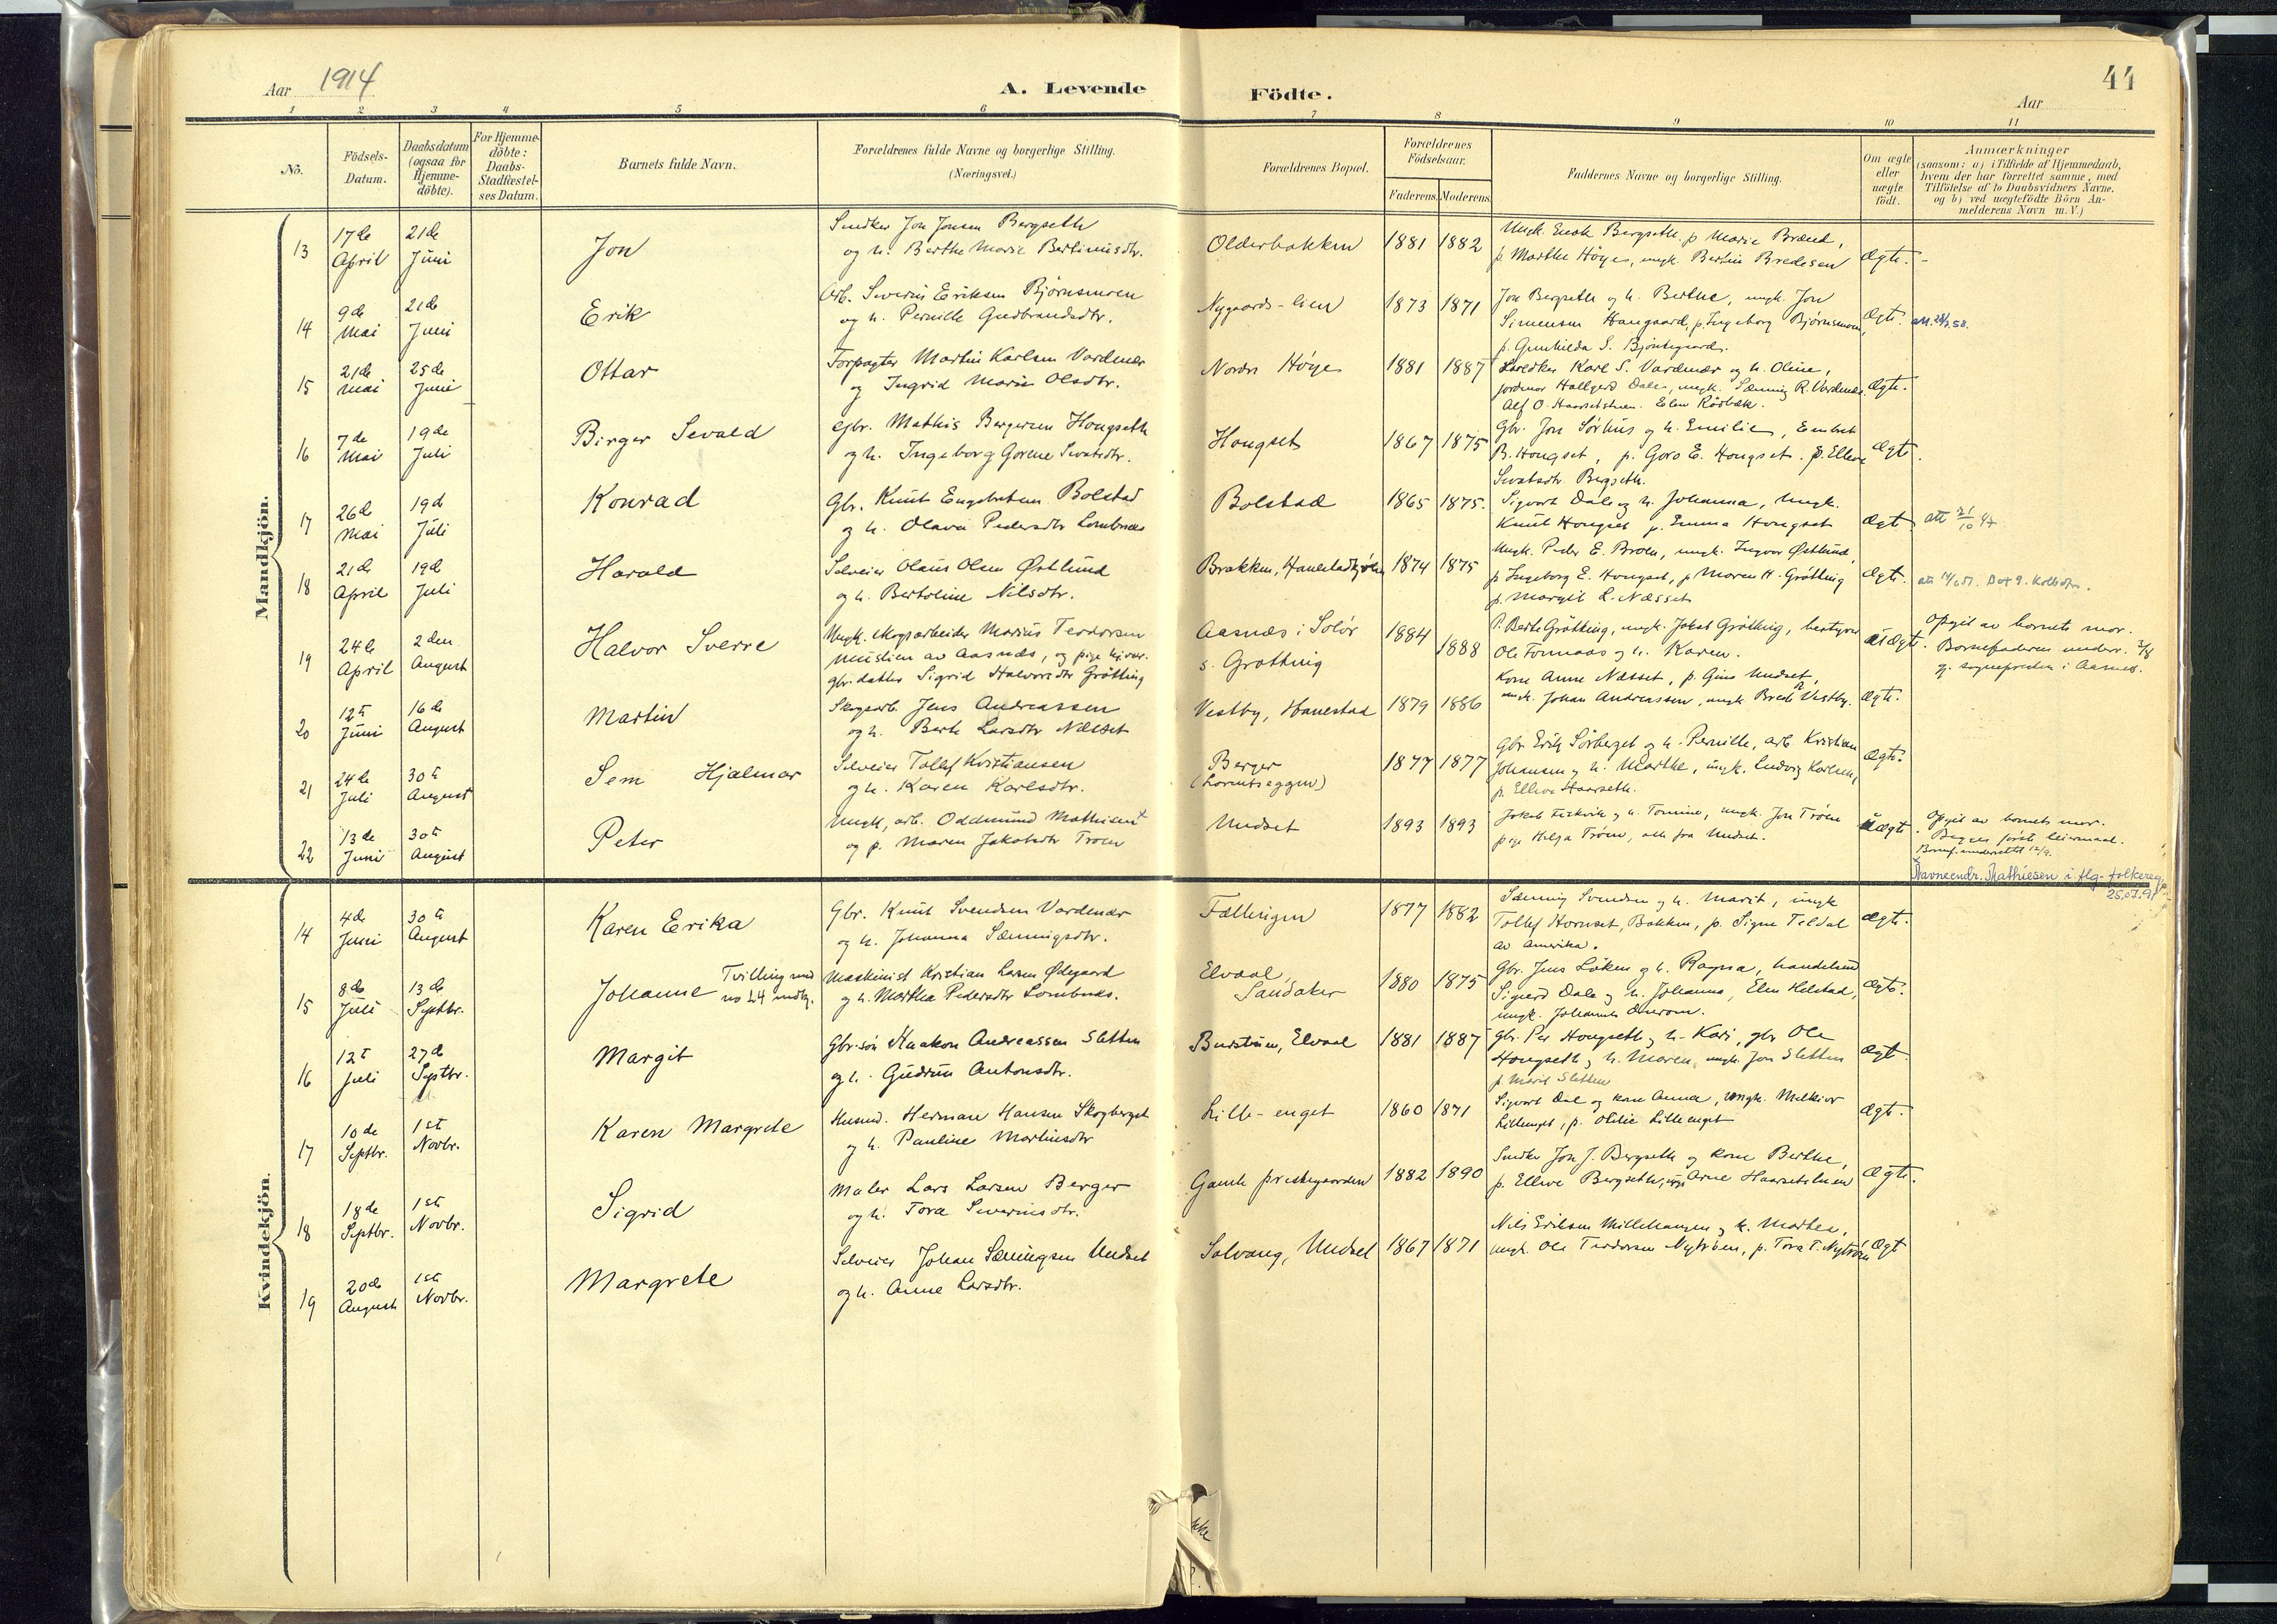 Aar 1914
A. Levende
Födte.
44
Aar
1 2 3 4 5 6 7 8 9 10 11
No.
Födsels-
Datum.
Daabsdatum
(ogsaa for
Hjemme-
döbte).
For Hjemme-
döbte:
Daabs-
Stadfæstel-
ses Datum.
Barnets fulde Navn.
Forældrenes fulde Navne og borgerlige Stilling.
(Næringsvei.)
Forældrenes Bopæl.
Forældrenes
Födselsaar.
Faderens. Moderens.
Faddernes Navne og borgerlige Stilling.
Om ægte
eller
uægte
födt.
Anmærkninger
(saasom: a) i Tilfælde af Hjemmedaab,
hvem der har forrettet samme, med
Tilföielse af to Daabsvidners Navne.
og b) ved uægtefödte Börn An-
melderens Navn m. V.)
Mandkjön.
13 17de April 21de Juni Jon
Smedker Jon Jonsen Bergseth
og h. Berthe Marie Bertinusdtr.
Olderbakken 1881 1882
Ungk. Enok Bergseth, p Marie Brænd,
p. Marthe Höye, ungk. Bertin Bredesen
Ægte.
14 9de Mai 21de Juni Erik
Arb. Severin Eriksen Bjørnsmoen
og h. Pernille Gudbrandsdtr.
Nygaards-lien 1873 1871
Jon Bergseth og h. Berthe, ungk. Jon
Simensen Haugaard, p. Ingeborg Bjørnsmoen,
p. Gunhilda S. Bjöntegaard.
Ægte.
15 21de Mai 25de Juni Ottar
Forpagter Martin Karlsen Vardenær
og Ingrid Marie Olsdtr.
Nordre Höye 1881 1887
Karl S. Vardenær og h. Oline,
jordmor Hallgerd Dale, ungk. Sæming R. Vardenær
Alf O. Haarsetstuen. Elen Rödbæk.
Ægte.
16 7de Mai 19de Juli Birger Sevald
Gbr. Mathis Bergersen Hongseth
og h. Ingeborg Gorene Sevatsdtr.
Hongset 1867 1875
Gbr. Jon Sörhus og h. Emilie, Embret
B. Hongset, p. Goro E. Hongset. p. Ellen
Sevatsdtr. Bergseth.
Ægte.
17 26de Mai 19de Juli Konrad
Gbr. Knut Engebretsen Bolstad
og h. Olava Pedersdtr Lombnes
Bolstad 1865 1875.
Sigvart Dale og h. Johanna, Ungk.
Knut Hongset p. Emma Hongset
Ægte. att 21/10 47
18 21de April 19de Juli Harald
Selveier Olaus Olsen Østlund
og h. Bertoline Nilsdtr.
Brakken, Hanestadkjölen 1874 1875
Ungk. Peder E. Broen, ungk. Ingvar Østlund,
p Ingeborg E. Hongset, p Maren H. Gröthing
p. Margit L. Næsset
Ægte.
19 24de April 2den August Halvor Sverre
Ungk. skogsarbeider Marius Teodorsen
av Aasnes, og pige hjemv.
gbr.datter Sigrid Halvorsdtr Gröthing
Aasnes i Solör
s. Grothing 1884 1888
P. Berte Gröthing, ungk. Jakob Gröthing, bestyrer
Ole Formaas og h. Karen.
Uægte.
Opgit av barnets mor.
Barnefaderen underr. 3/8
gj. sogneprosten i Aasnes.
20 12te Juni 16de August Martin
Skogsarb. Jens Andreassen
og h. Berte Larsdtr Næsset
Vestby, Hanestad 1879 1886
Kone Anne Næsset, p. Gina Undset,
ungk. Johan Andreassen, ungk Brede Vestby.
Ægte.
21 24de Juli 30te August Sem Hjalmar
Selveier Tollef Kristiansen
og h. Karen Karlsdtr.
Berger
(Lomnæseggen) 1877 1877
Gbr Erik Sörberget og h. Pernille, arb Kristian
Johansen og h. Marthe, ungk. Ludvig Karlsen,
p. Ellen Haarseth.
Ægte.
22 13de Juni 30te August Peter
Ungk, arb. Oddmund Mathisen
og p. Maren Jakobsdtr Troen
Undset 1893 1893
Jakob Fiskvik og h. Tomine, ungk. Jon Tröen
pige Helga Tröen, alle fra Undset.
Uægte
Opgit av barnets mor.
Begges förste leiermaal.
Barnef. underrettet 12/9.
Navneendr. Mathiesen i flg. folkereg.
25.07.91
Kvindekjön.
14 4de Juni 30te August Karen Erika
Gbr. Knut Svendsen Vardenær
og h. Johanna Sæmingsdtr.
Fællingen 1877 1882
Sæming Svendsen og h. Marit, ungk
Tollef Hornset, Bakken, p. Signe Teldal
av Amerika.
Ægte.
15 8de Juli 13de Septbr. Johanne
Tvilling med
no 24 mdkj.
Maskinist Kristian Larsen Ødegaard
og h. Martha Pedersdtr Lombnes.
Elvaal,
Sandaker 1880 1875
Gbr. Jens Löken og h. Ragna, handelsmd
Sigurd Dale og h. Johanna, Elen Helstad,
ungk. Johannes
Ægte.
16 12te Juli 27de Septbr. Margit
Gbr.sön Haakon Andreassen Sletten
og h. Gudrun Antonsdtr.
Burstuen, Elvaal 1881 1887
gbr. Per Hongseth og h. Kari, gbr Ole
Hongseth og h. Maren, ungk. Jon Sletten
p. Marit Sletten
Ægte.
17 10de Septbr. 1ste Novbr. Karen Margrete
Husmd. Herman Hansen Skogberget
og h. Pauline Martinsdtr
Lille-enget 1860 1871
Sigvart Dal og kone Anna, ungk. Melkior
Lilleenget, p. Otilie Lilleenget
Ægte.
18 18de Septbr. 1ste Novbr. Sigrid
Maler Lars Larsen Berger
og h. Tora Severinsdtr.
Gamle prestegaarden 1882 1890
Smedker Jon J. Bergseth og kone Berthe,
p. Ellen Bergseth, ungk Arne Haarsetstuen
Ægte.
19 20de August 1ste Novbr. Margrete
Selveier Johan Sæmingsen Undset
og h. Anne Larsdtr.
Solvang, Undset 1867 1871
Nils Eriksen Millehaugen og h. Marthe,
ungk. Ole Teodorsen Nytröen, p. Tora T. Nytröen
Ægte